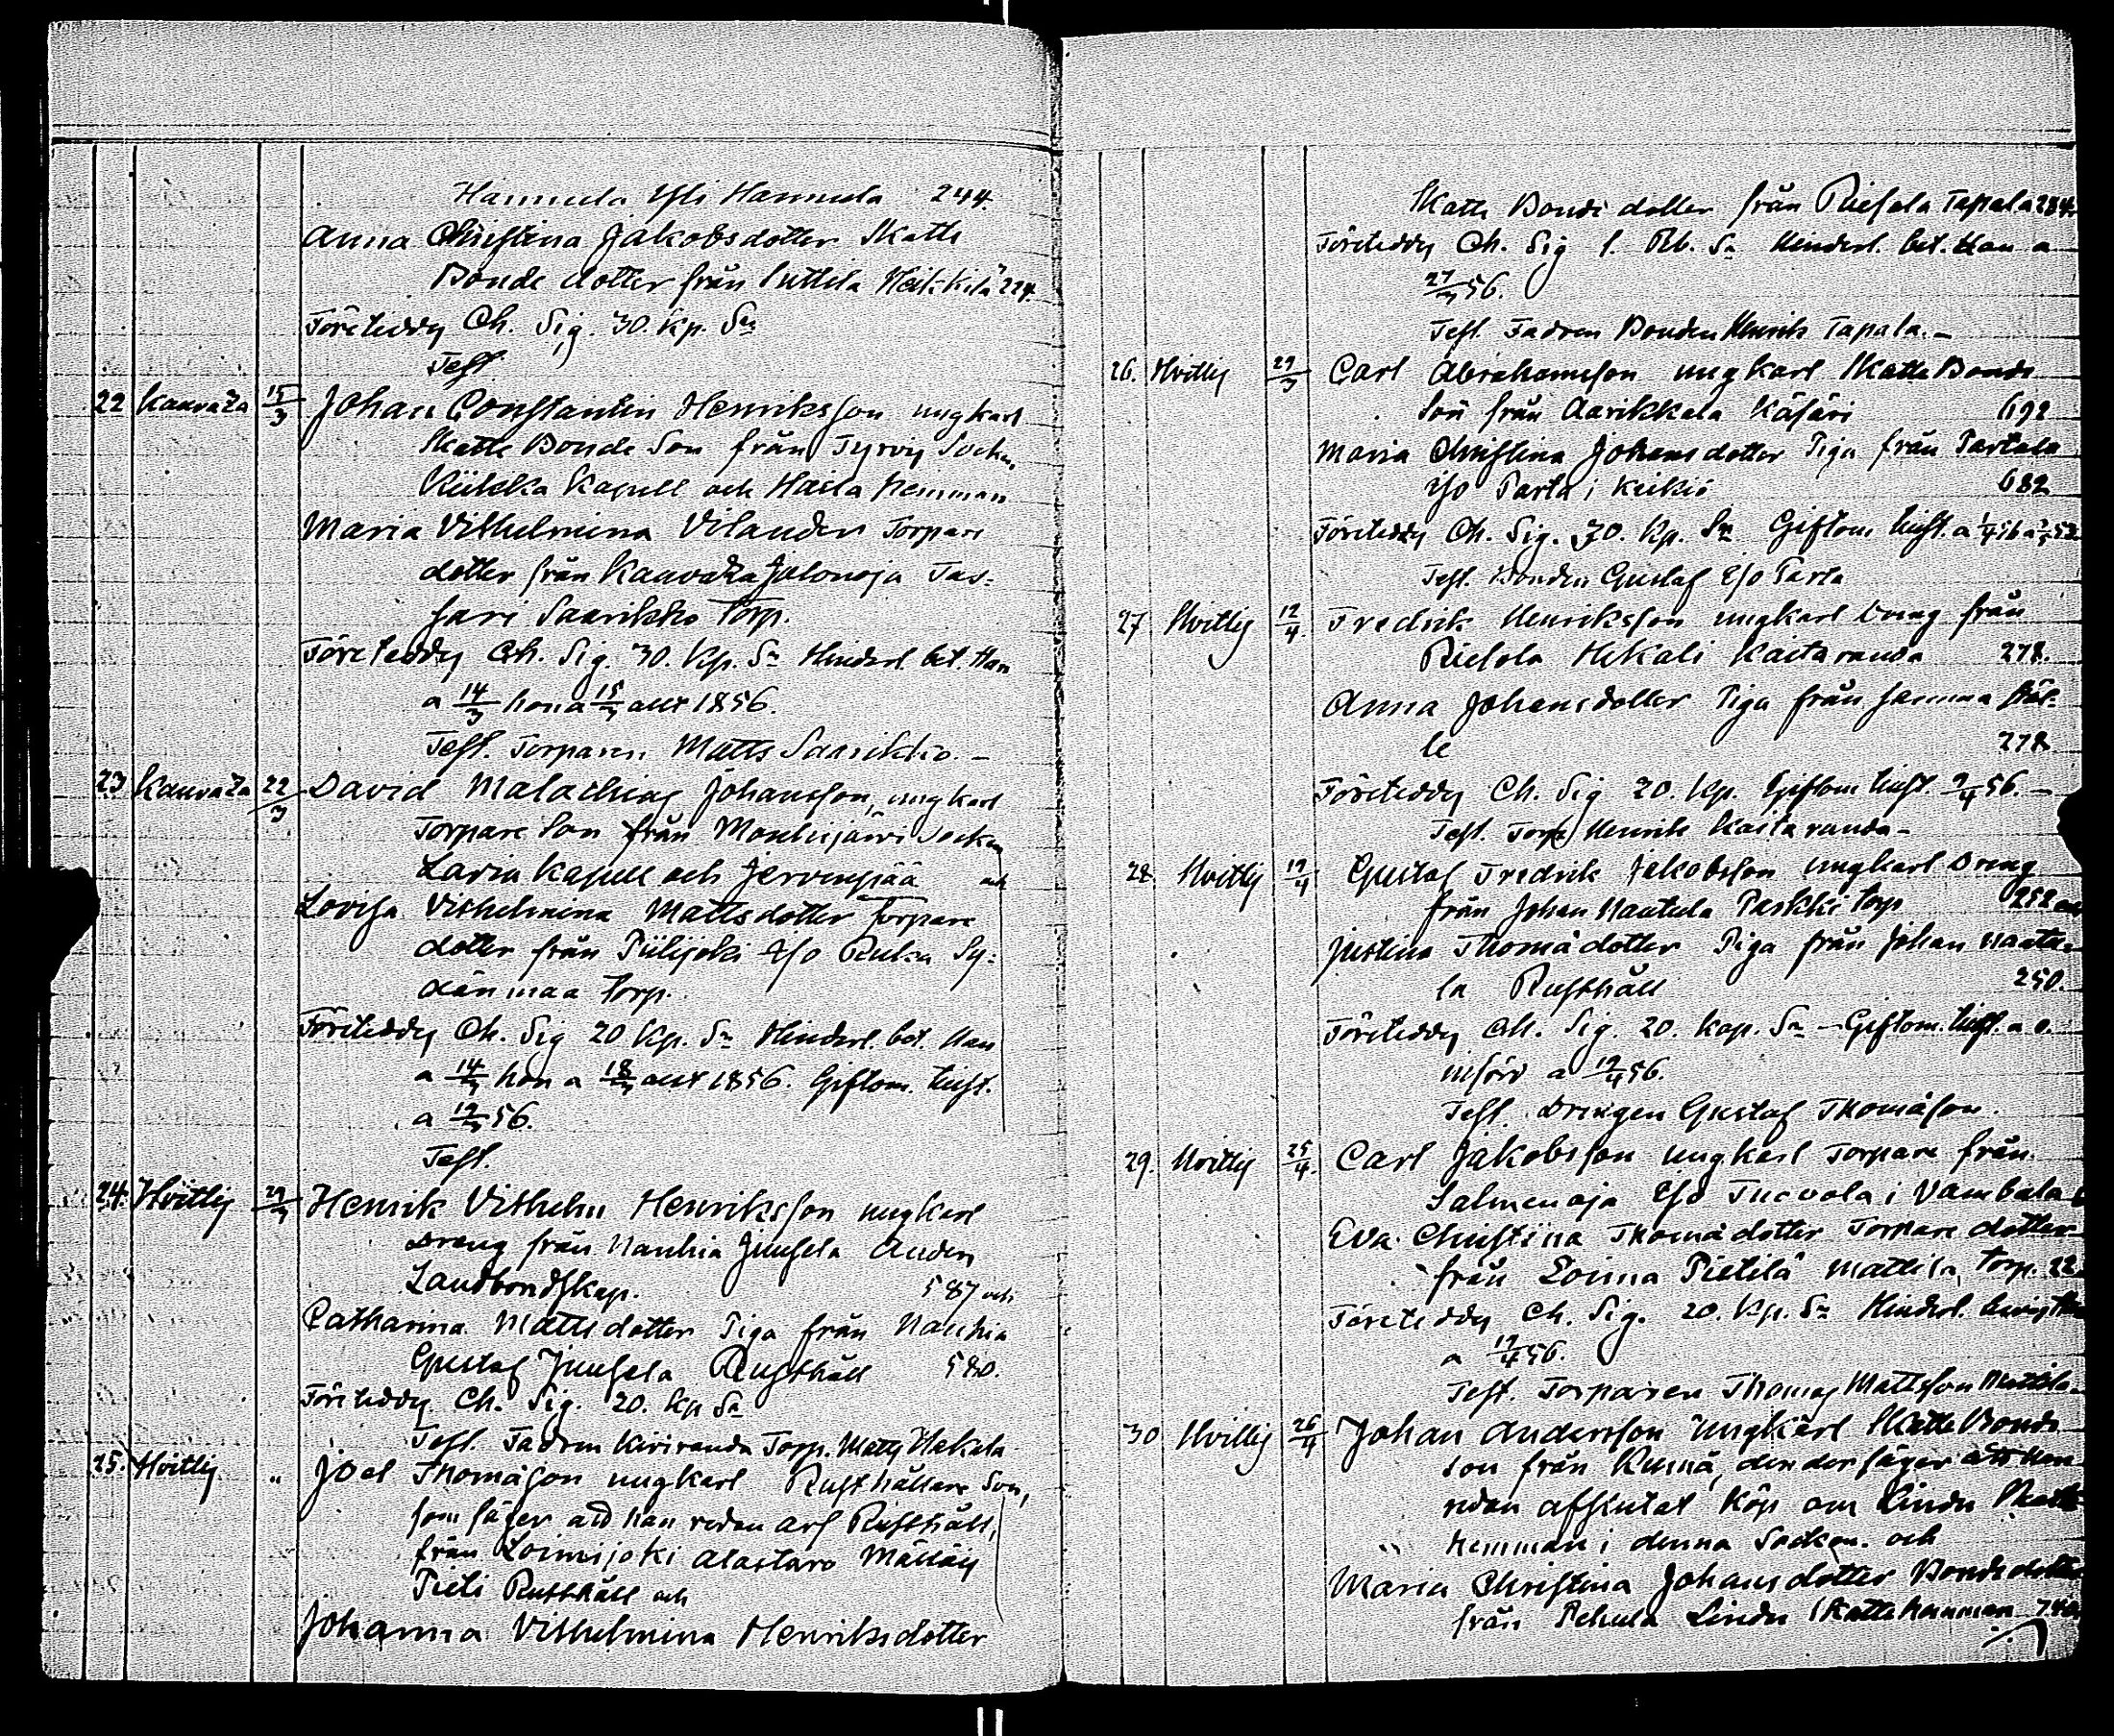 Hannula Yli Hannula 244.
Anna Christina Jakobsdotter Skatte
Bonde dotter från Suttila Heikkilä 224.
Företeddy Ch. Sig. 30. Kp. Sr
Test
22 Kauvatsa 15/3 Johan Constantin Henriksson ungkarl
Skatte Bonde Son från Tyrvis Socken,
Kiikka Kapell och Haita hemman
Maria Vilhelmina Vilander Torpare
dotter från Kauvatsa Jalonoja Tas-
sari Saarikko Torp.
Företeddy Ch. Sig. 30. Kp. Sr Hinderl. bet. Han
a 14/3 hon a 15/3 allt 1856.
Test. Torparen Matts Saarikko. -
23 Kauvatsa 22/3 David Malachias Johansson, ungkarl
Torpare Son från Mouhijärvi Socken
Lavia Kapell och Jervenpää och
Lovisa Vilhelmina Mattsdotter Torpare
dotter från Piilijoki Yso Ruka Sy-
dänmaa Torp.
Företeddy Ch. Sig 20 Kp. Sr Hinderl. bet. Han
a 14/3 hon a 18/3 allt 1856. Giftom. tillst.
a 19/3 56.
Test.
24. Hvittis 29/3 Henrik Vilhelm Henriksson ungkarl
Dreng från Nanhia Juusela Anden
Landbondskap. 587 och
Catharina Mattsdotter Piga från Nanhia
Gustaf Juusela Rusthåll 580.
Företeddy Ch. Sig. 20. Kp Sr
Test. Fadren Kiviranda Torp. Matts Hakala
25. Hvittis " Joel Thomasson ungkarl Rusthållare Son,
som säger att han redan arf Rusthåll,
från Loimijoki Alastaro Mälläis
Pieti Rusthåll och
Johanna Vilhelmina Henriksdotter
Skatte Bonde dotter från Riesola Tapala 284.
Företeddy Ch. Sig 1. Rb. Sr Hinderl. bet. Han a
27/3 56.
Test. Fadren Bonden Henrik Tapala. -
26. Hvittis 29/3 Carl Abrahamsson ungkarl Skatte Bonde
Son från Aarikkala Käsäri 692
Maria Christina Johansdotter Piga från Partala
Yso Parta i Keikiö 682
Företeddy Ch. Sig. 30. Kp. Sr Giftom tillst. a
Test. Bonden Gustaf Yso Parta
27 Hvittis 12/4. Fredrik Henriksson ungkarl Dreng från
Riesola Hekali Kaitaranda 278.
Anna Johansdotter Piga från samma ställe
le 278
Företeddy Ch. Sig 20. Kp. Giftom tillst. 9/4 56. -
Test. Torp. Henrik Kaitaranda -
28. Hvittis 19/4 Gustaf Fredrik Jakobsson ungkarl Dreng
från Johan Nautula Paskki Torp 252 och
Justina Thomædotter Piga från Johan Nautu-
la Rusthåll 250.
Företeddy Ch. Sig. 20. Kop. Sr - Giftom. tillst. a o.
införd a 12/4 56.
Test. Drengen Gustaf Thomasson.
29. Hvittis 25/4. Carl Jakobsson ungkarl Torpare från
Salmenoja Yso Tuevola i Vambula
Eva Christina Thomædotter Torpare dotter
från Loima Pietilä Mattila Torp. 22
Företeddy Ch. Sig. 20. Kp. Sr Hinderl.
a 19/4 56.
Test. Torparen Thomas Mattsson Mattila
30 Hvittis 26/4 Johan Andersson Ungkarl Skatte Bonde
son från Kumä, den der säger att han
redan afslutat köp om Lindu Skatte
hemman i denna Socken. och
Maria Christina Johansdotter Bonde dotter
från Pehula Lindu Skatte hemman